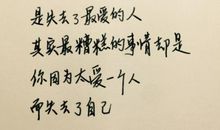 是失去了最爱的人
其实最糟糕的事情却是
你因为太爱一个人
而失去了自己